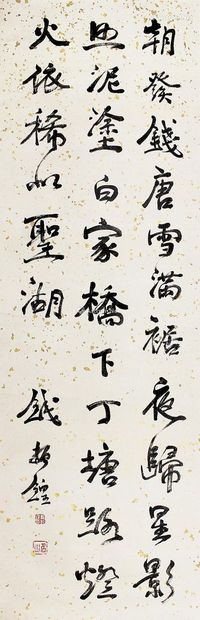 朝發錢唐雪滿裾夜歸星影
照泥塗白家橋下丁塘路燈
火依稀似聖湖 錢振鍠